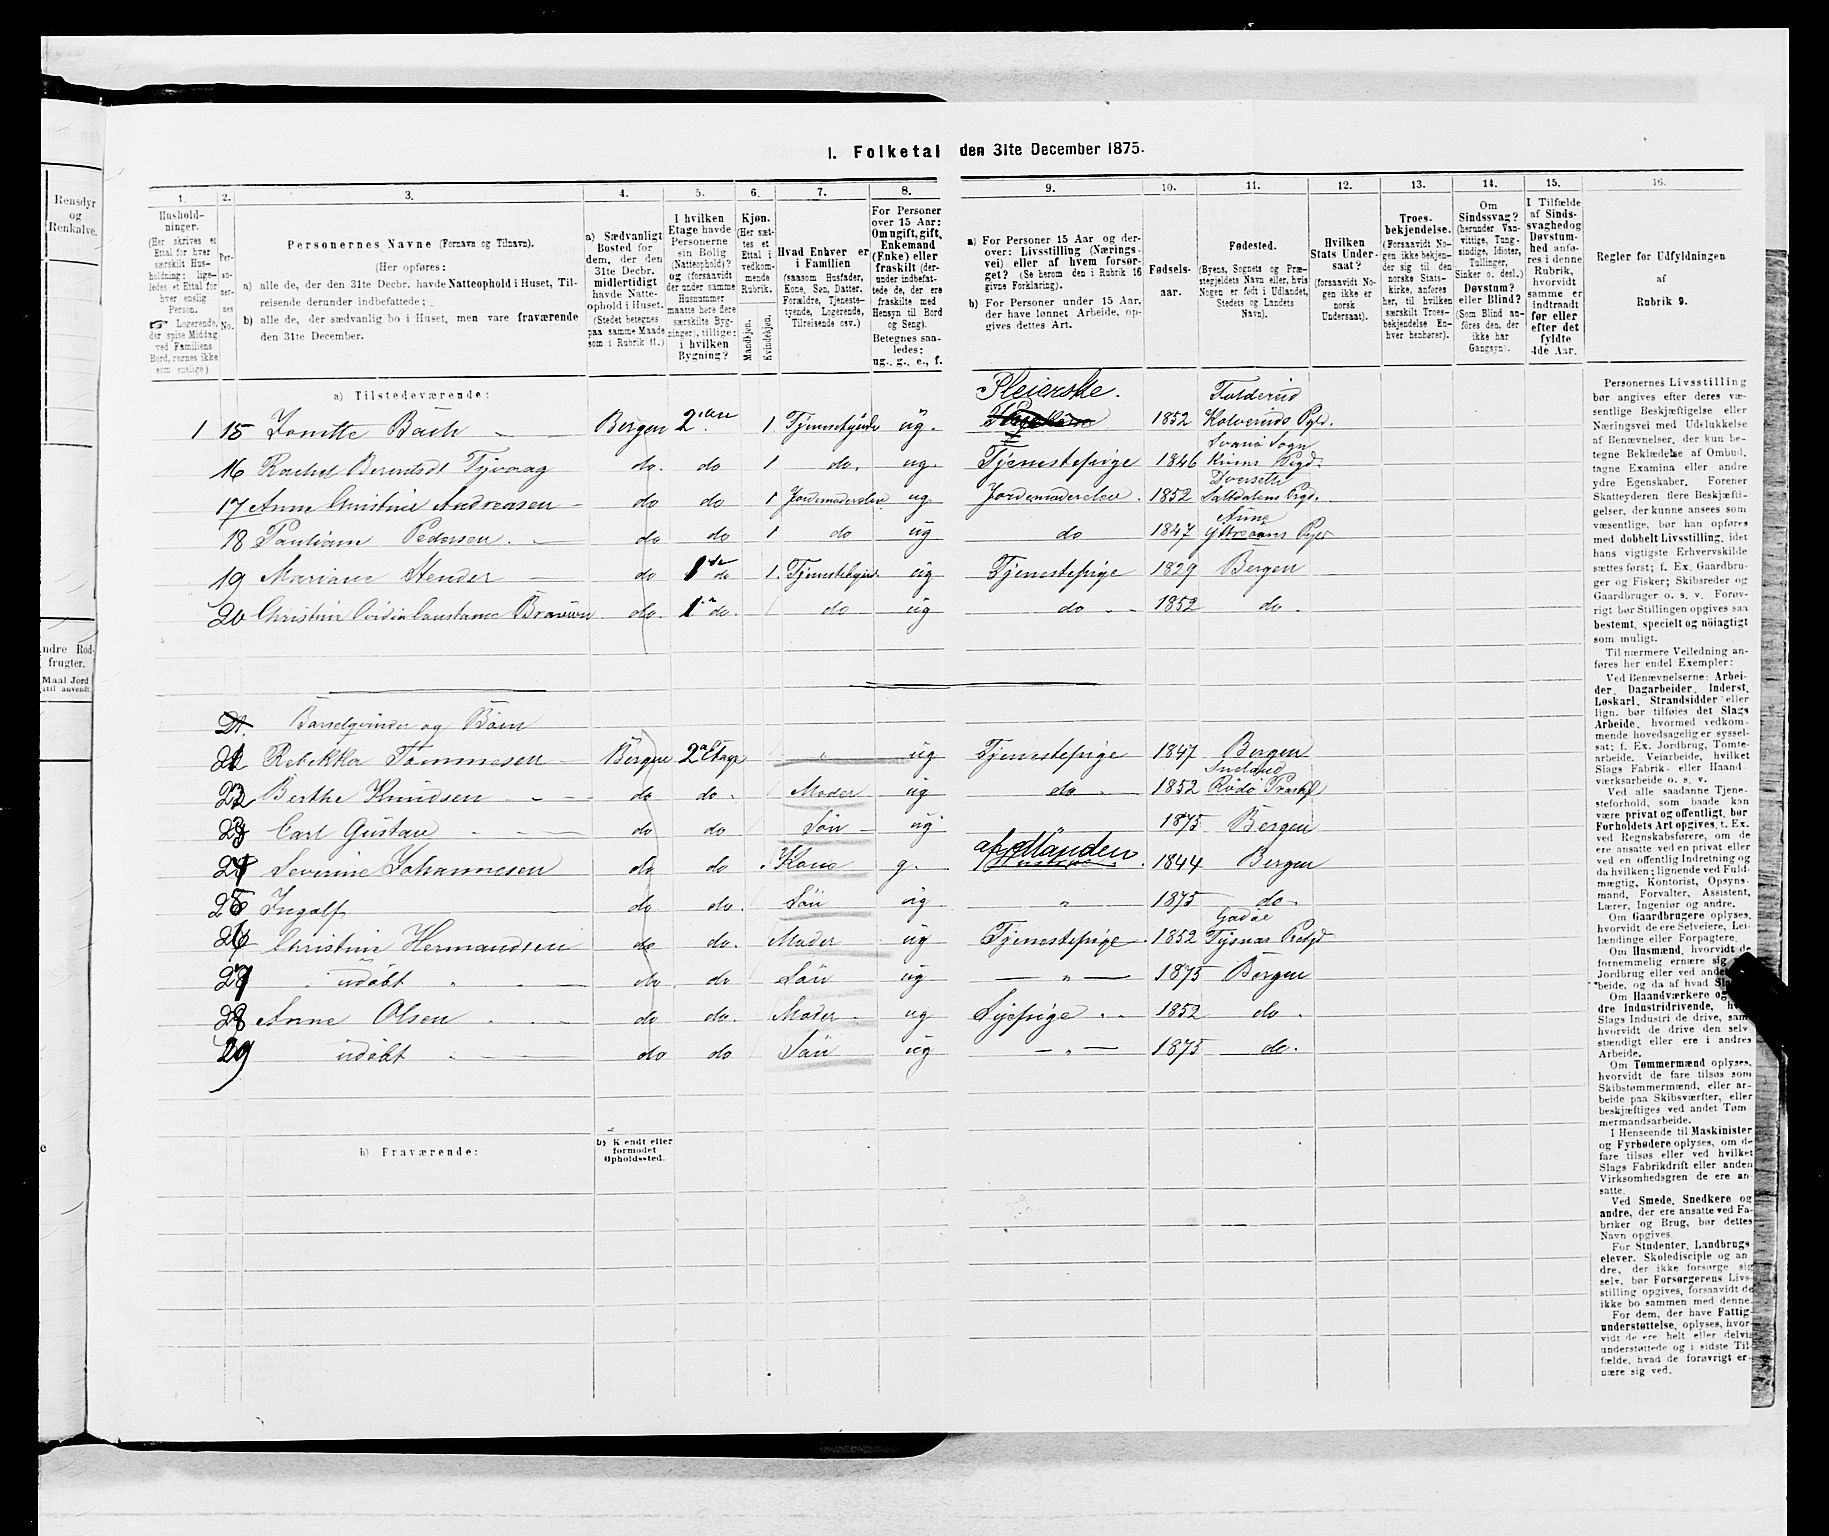 1. Folketal den 31te December 1875.
Rensdyr
og
Renkalve.
ndre Rod-
frugter.
Maal Jord
1.
Hushold-
ninger.
(Her skrives et
Ettal for hver
særskilt Hus-
holdning; lige-
ledes et Ettal for
hver enslig
Person.
☞ Logerende,
der spise Middag
ved Familiens
Bord, regnes ikke
som enslige)
2.
Per-
so-
ner-
nes
No.
3.
Personernes Navne (Fornavn og Tilnavn).
(Her opføres:
a) alle de, der den 31te Decbr. havde Natteophold i Huset, Til-
reisende derunder indbefattede;
b) alle de, der sædvanlig bo i Huset, men vare fraværende
den 31te December.
4.
a) Sædvanligt
Bosted for
dem, der den
31te Decbr.
midlertidigt
havde Natte-
ophold i Huset.
(Stedet betegnes
paa samme Maade
som i Rubrik 11.)
5.
I hvilken
Etage havde
Personerne
sin Bolig
(Natteophold)?
og (forsaavidt
der under samme
Husnummer
maatte høre flere
særskilte Byg-
ninger), tillige:
i hvilken
Bygning?
6.
Kjøn.
(Her sæt-
tes et
Ettal i
vedkom-
mende
Rubrik.
Mandkjøn.
Kvindekjøn.
7.
Hvad Enhver er
i Familien
(saasom Husfader,
Kone, Søn, Datter,
Forældre, Tjeneste-
tyende, Logerende,
Tilreisende osv.)
8.
For Personer
over 15 Aar:
Om ugift, gift,
Enkemand
(Enke) eller
fraskilt (der-
under indbefat-
tede de, der ere
fraskilte med
Hensyn til Bord
og Seng).
Betegnes saa-
ledes:
ug., g., e., f.
9.
a) For Personer 15 Aar og der-
over: Livsstilling (Nærings-
vei) eller af hvem forsør-
get? (Se herom den i Rubrik 16
givne Forklaring).
b) For Personer under 15 Aar,
der have lønnet Arbeide, op-
gives dettes Art.
10.
Fødsels-
aar.
11.
Fødested.
(Byens, Sognets og Præ-
stegjeldets Navn eller, hvis
Nogen er født i Udlandet,
Stedets og Landets
Navn).
12.
Hvilken
Stats Under-
saat?
(forsaavidt No-
gen ikke er
norsk
Undersaat).
13.
Troes-
bekjendelse.
(Forsaavidt No-
gen ikke bekjen-
der sig til den
norske Stats-
kirke, anføres
her, til hvilken
særskilt Troes-
bekjendelse En-
hver henhører).
14.
Om
Sindssvag?
(herunder Van-
vittige, Tung-
sindige, Idioter,
Tullinger,
Sinker o. desl.)
Døvstum?
eller Blind?
(Som Blind an-
føres den, der
ikke har
Gangsyn).
15.
I Tilfælde
af Sinds-
svaghed og
Døvstum-
hed anfø-
res i denne
Rubrik,
hvorvidt
samme er
indtraadt
før eller
efter det
fyldte
4de Aar.
16.
Regler for Udfyldningen
af
Rubrik 9.
a) Tilstedeværende:
Pleierske.
1 15 Bergen 2. 1. ug. 1852
16 Rachel do. do 1 do. ug. Tjenestepige 1846
17 Anne Christine Andreasen do do 1 Jordemoderelev. ug. Jordemoderelev. 1852
18 Pedersen do do 1 do ug do 1847
19 do 1 do 1. ug Tjenestepige 1829 Bergen
20 Christine do. 1 do. do ug do 1852 do.
Barselqvinder og Børn
21 Rebekka Tommesen Bergen 2 Etage " ug Tjenestepige 1847 Bergen
22 Berthe Knudsen do do. Moder ug do 1852
23 Carl Gustav do do Søn ug " 1875 Bergen
24 Severine Johannesen do do Kone g. af Manden 1844 Bergen
25 Ingolf do do. Søn ug " 1875 do.
26 Christine do do. Moder ug Tjenestepige 1852
27 udøbt do do Søn ug " 1875 Bergen
28 Anne Olsen do do. Moder ug Sypige 1852 do.
29 udøbt do do Søn ug " 1875 do.
b) Fraværende:
b) Kjendt eller
formodet
Opholdssted.
Personernes Livsstilling
bør angives efter deres væ-
sentlige Beskjæftigelse eller
Næringsvei med Udelukkelse
af Benævnelser, der kun be-
tegne Beklædelse af Ombud,
tagne Examina eller andre
ydre Egenskaber. Forener
Skatteyderen flere Beskjæfti-
gelser, der kunne ansees som
væsentlige, bør han opføres
med dobbelt Livsstilling, idet
hans vigtigste Erhvervskilde
sættes først; f. Ex. Gaardbru-
ger og Fisker; Skibsreder og
Gaardbruger o. s. v. Forøv-
rigt bør Stillingen opgives saa
bestemt, specielt og nøiagtigt
som muligt.
Til nærmere Veiledning an-
føres her endel Exempler:
Ved Benævnelserne: Arbei-
der, Dagarbeider, Inderst,
Løskarl, Strandsidder eller
lign. bør tilføies det Slags
Arbeide, hvormed vedkom-
mende hovedsageligt er syssel-
sat; f. Ex. Jordbrug, Tomte-
arbeide, Veiarbeide, hvilket
Slags Fabrik- eller Haand-
værksarbeide o. s. v.
Ved alle saadanne Tjene-
steforhold, som baade kan
være privat og offentligt, bør
Forholdets Art opgives, t. Ex.
ved Regnskabsførere, om de
ere ansatte ved en privat eller
ved en offentlig Indretning og
da hvilken; lignende ved Fuld-
mægtig, Kontorist, Opsyns-
mand, Forvalter, Assistent,
Lærer, Ingeniør og andre.
Om Gaardbrugere oplyses,
hvorvidt de ere Selveiere, Lei-
lændinge eller Forpagtere.
Om Husmænd, hvorvidt de
fornemmelig ernære sig
Jordbrug eller ved
beide, og da af hvad
Om Haandværkere og
dre Industridrivende,
Slags Industri de drive,
hvorvidt de drive den selv
stændigt eller ere i andres
Arbeide.
Om Tømmermænd oplyses,
hvorvidt de fare tilsøs som
Skibstømmermænd, eller ar-
beide paa Skibsværfter, eller
beskjæftiges ved andet Tøm
mermandsarbeide.
I Henseende til Maskinister
og Fyrbødere oplyses, om de
fare tilsøs eller ved hvilket
Slags Fabrikdrift eller anden
Virksomhedsgren de ere an-
satte.
Ved Smede, Snedkere og
andre, der ere ansatte ved Fa-
briker og Brug, bør dettes
Navn opgives.
For Studenter, Landbrugs
elever, Skoledisciple og an
dre, der ikke forsørge sig
selv, bør Forsørgerens Livs-
stilling opgives, forsaavidt de
ikke bo sammen med denne.
For dem, der have Fattig-
understøttelse, oplyses, hvor-
vidt de ere helt eller delvis
understøttede og i sidste Til-
fælde, hvad de forøvrigt er-
nære sig ved.